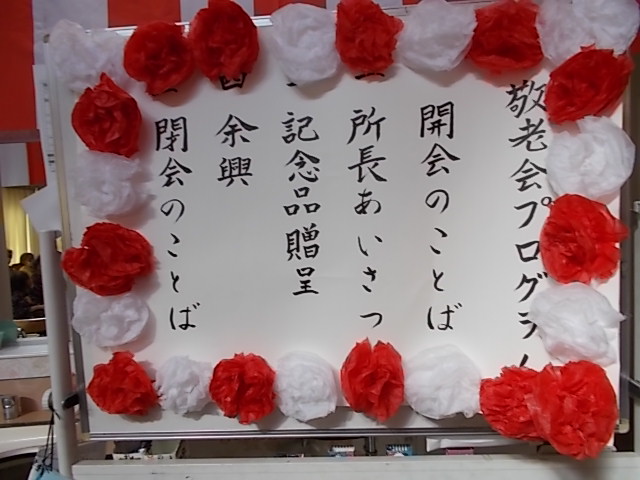 敬老会プログラム
開会のことば
所長あいさつ
記念品贈呈
四 余興
閉会のことば